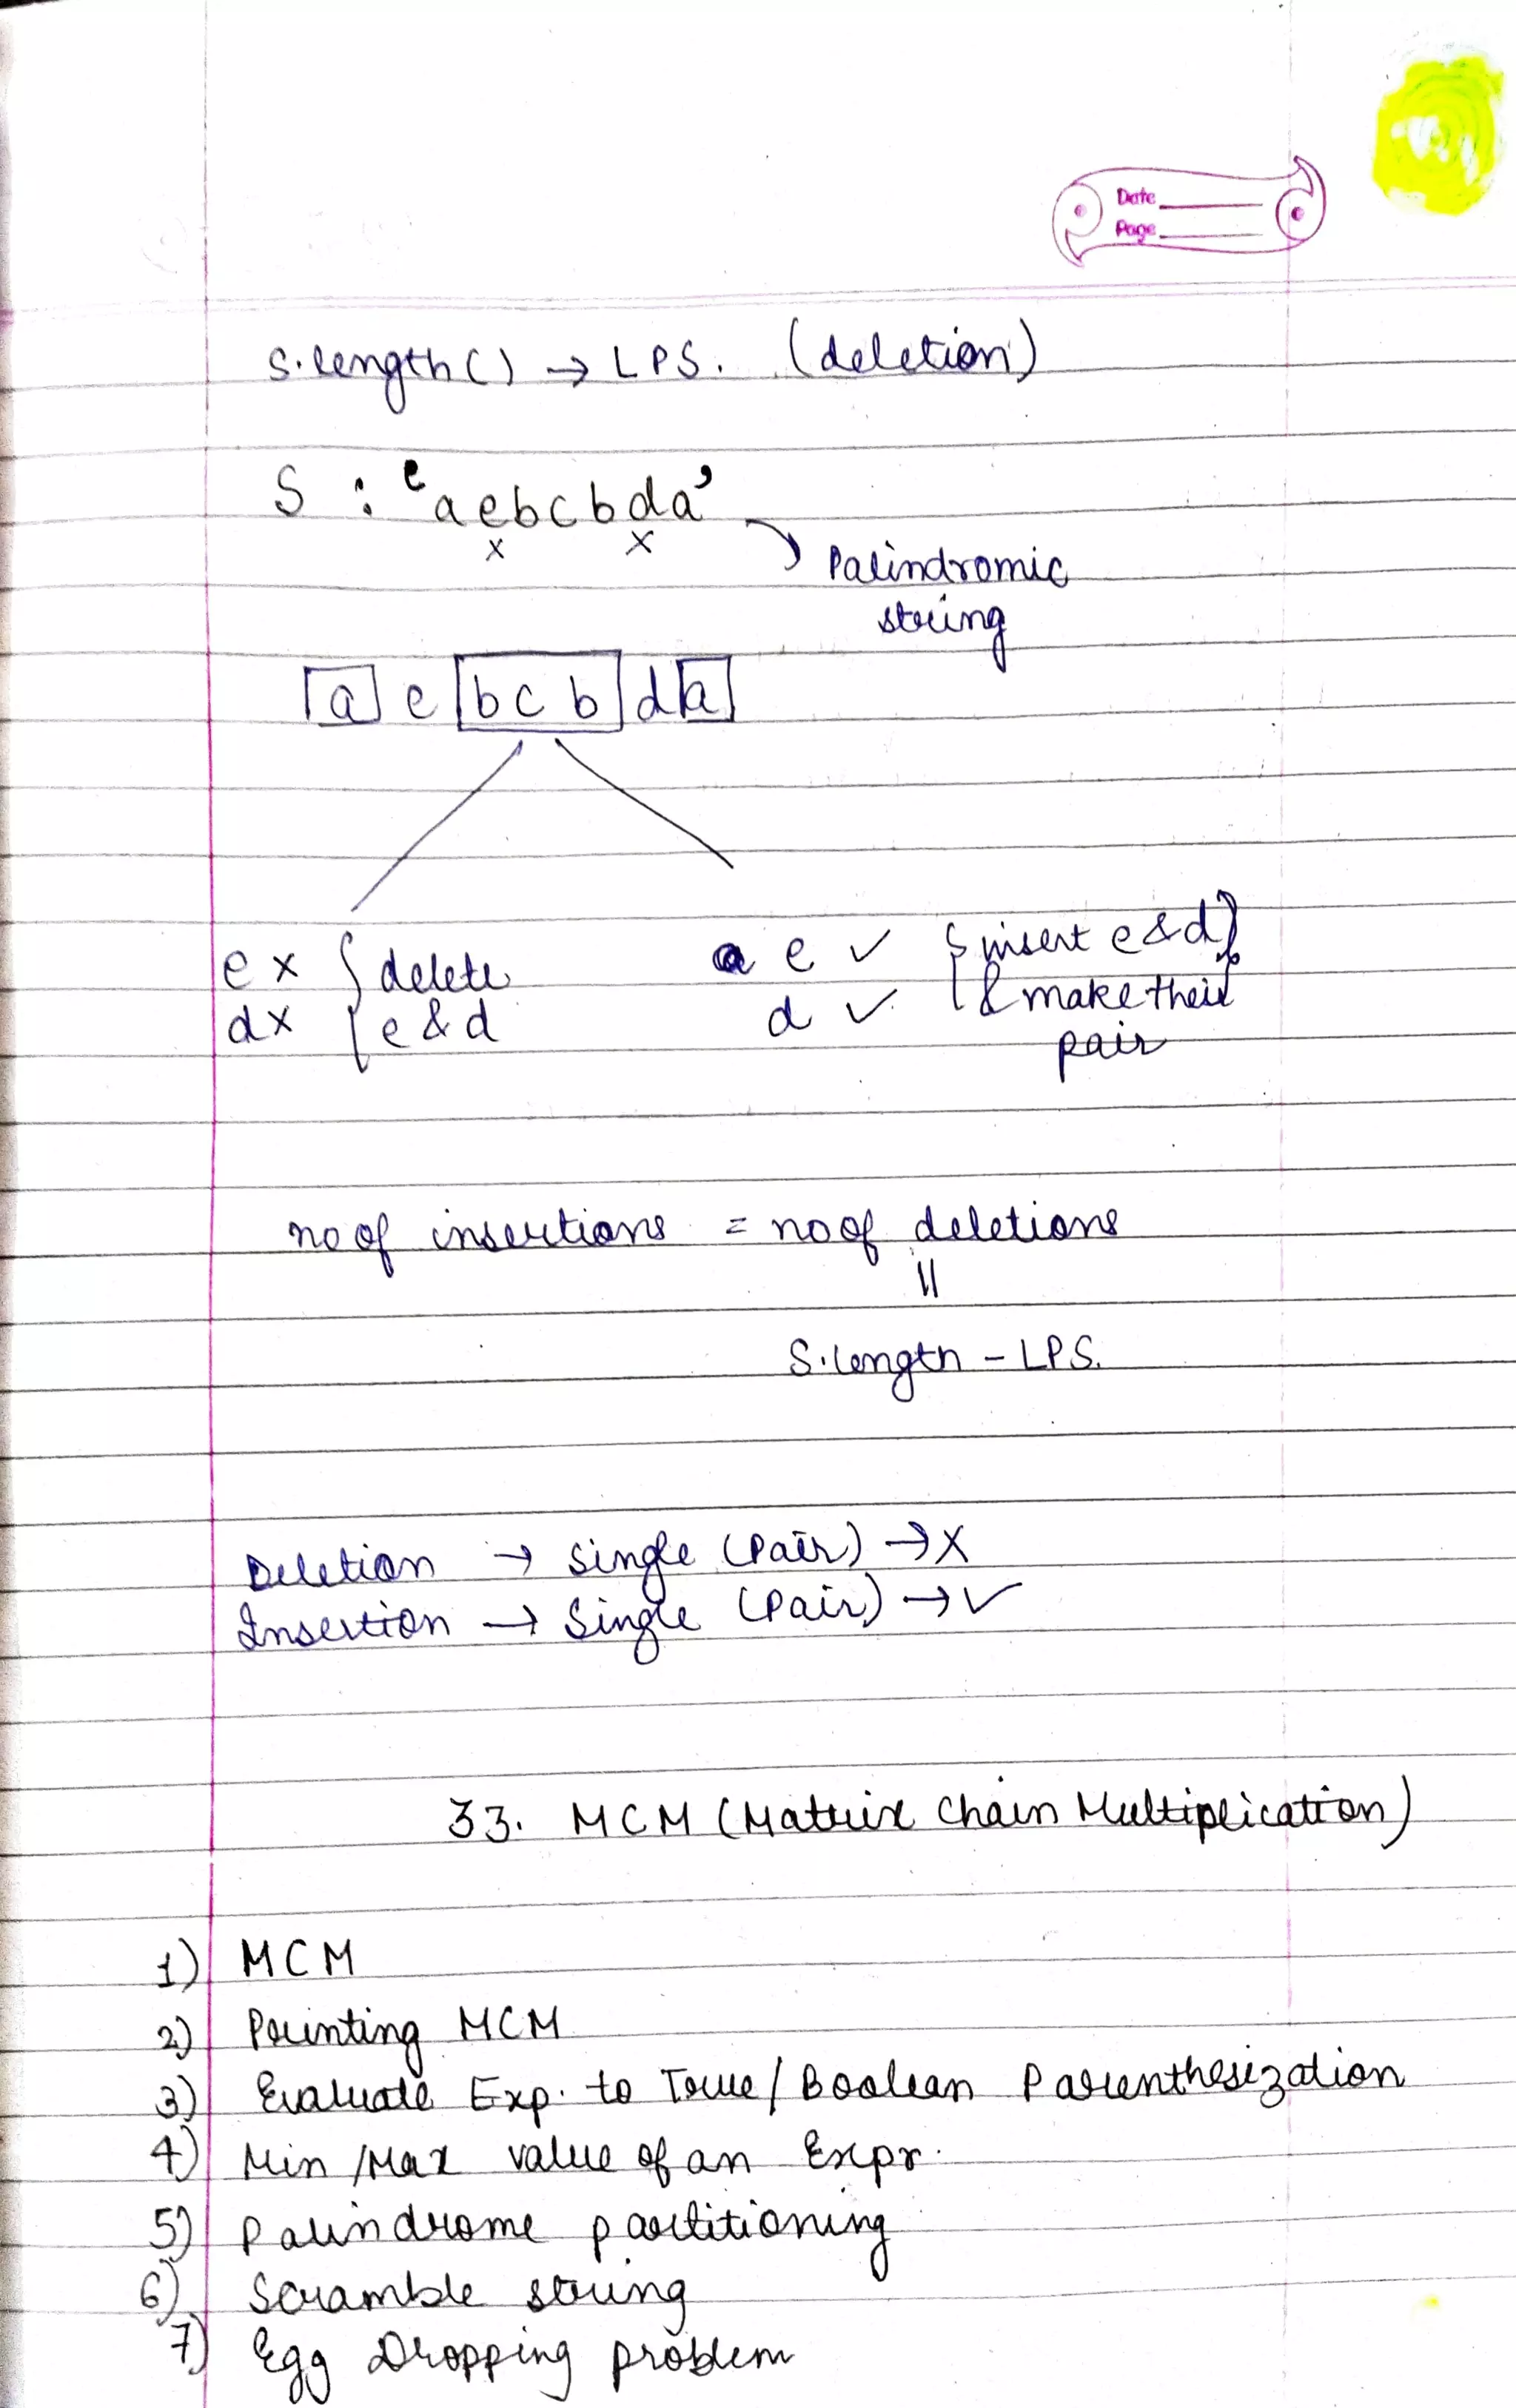 Date
Page
S.length() → LPS. (deletion)
S : 'aebcbda'
x x
Palindromic
string
a e bcb d a
e x { delete
d x { e & d
e ✓ { insert e & d }
d ✓ { & make their
pair
no of insertions = no of deletions
||
S.length - LPS.
Deletion → Single (Pair) → X
Insertion → Single (Pair) → ✓
33. MCM (Matrix Chain Multiplication)
1) MCM
2) Printing MCM
3) Evaluate Exp. to True/Boolean Parenthesization
4) Min/Max value of an Expr.
5) Palindrome partitioning
6) Scramble string
7) Egg Dropping problem